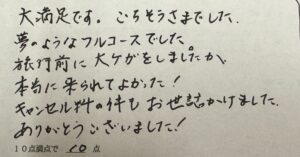 大満足です。ごちそうさまでした。
夢のようなフルコースでした。
旅行前に大ケガをしましたが、
本当に来られてよかった!
キャンセル料の件もお世話かけました。
ありがとうございました!
10点満点で 10 点